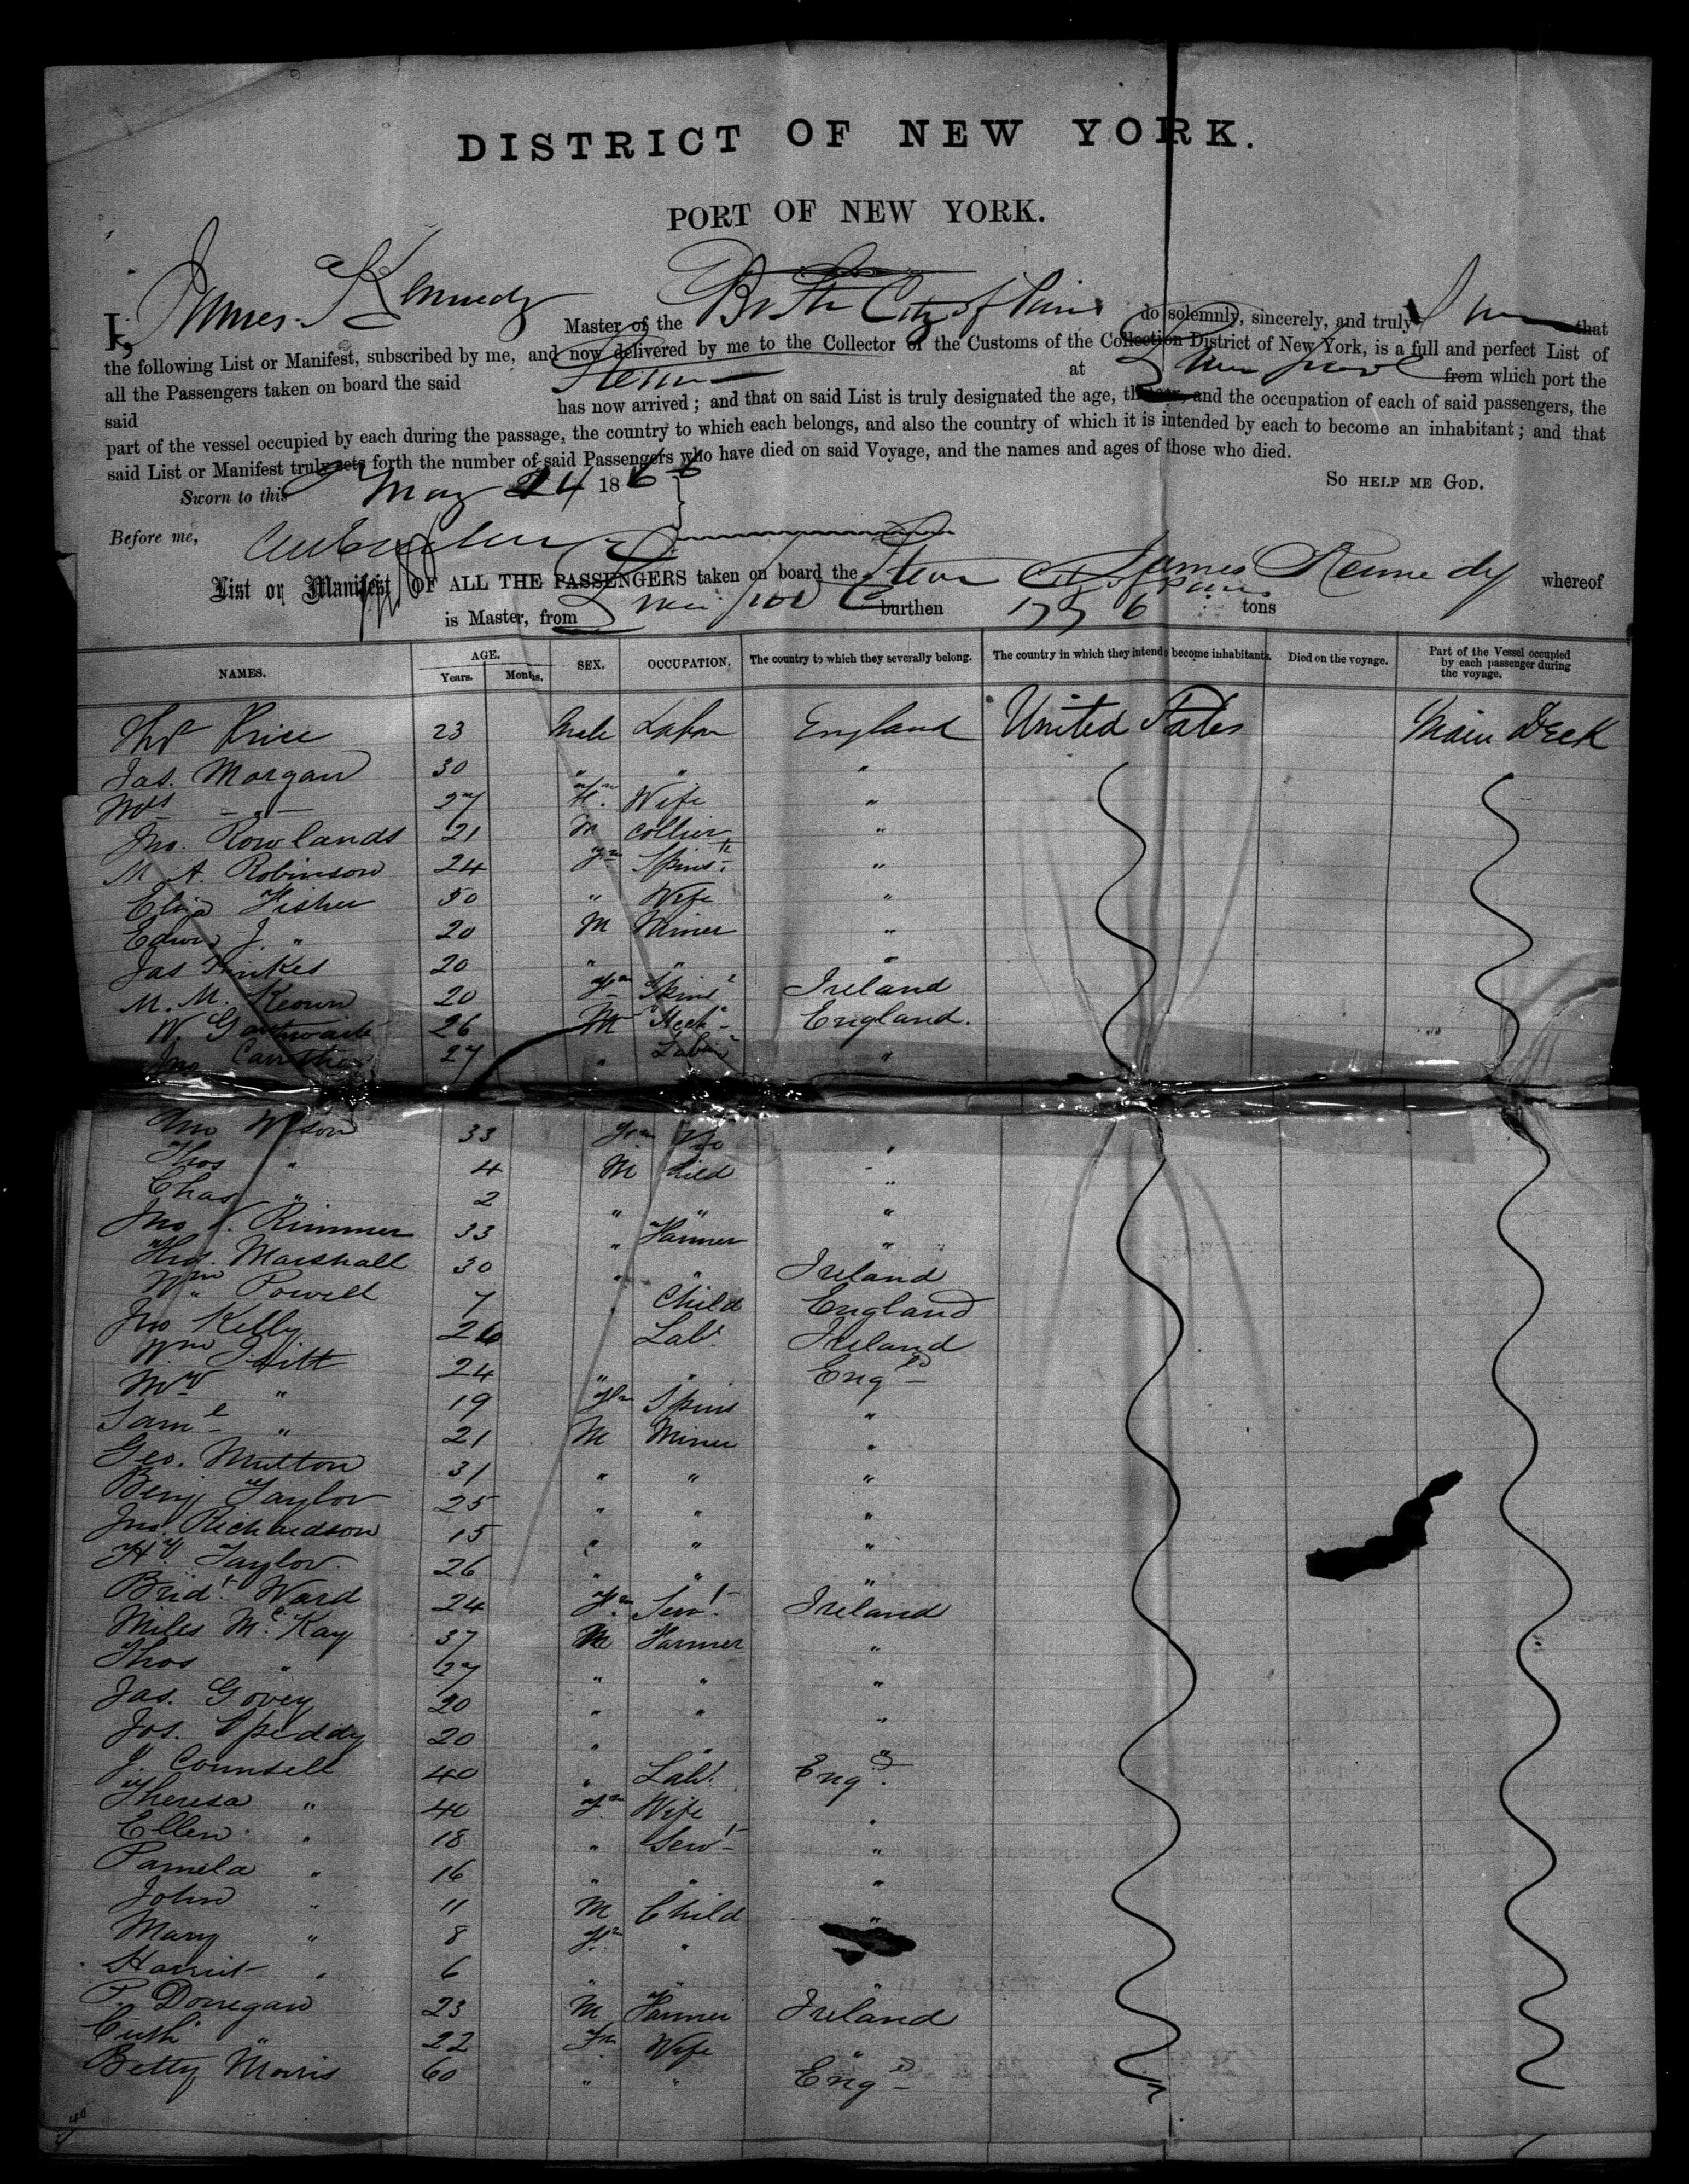 DISTRICT OF NEW YORK.
PORT OF NEW YORK.
I, James Kennedy Master of the Br Str City of Paris do solemnly, sincerely, and truly Swear that
the following List or Manifest, subscribed by me, and now delivered by me to the Collector of the Customs of the Collection District of New York, is a full and perfect List of
all the Passengers taken on board the said Steamer at Liverpool from which port the
said has now arrived; and that on said List is truly designated the age, the sex, and the occupation of each of said passengers, the
part of the vessel occupied by each during the passage, the country to which each belongs, and also the country of which it is intended by each to become an inhabitant; and that
said List or Manifest truly sets forth the number of said Passengers who have died on said Voyage, and the names and ages of those who died.
Sworn to this May 24 186 SO HELP ME GOD.
Before me,
List or Manifest OF ALL THE PASSENGERS taken on board the Steam City of Paris James Kennedy whereof
is Master, from Liverpool burthen tons
NAMES. AGE. Years. Months. SEX. OCCUPATION. The country to which they severally belong. The country in which they intend to become inhabitants. Died on the voyage. Part of the Vessel occupied by each passenger during the voyage.
Price 23 Male Labor England United States Main Deck
Jas. Morgan 30 " " "
Mrs " 27 Fm. Wife "
Jno. Rowlands 21 M Collier "
M. A. Robinson 24 Fm Spinstr. "
Eliza Fisher 50 " Wife "
Edwd J. " 20 M Miner "
Jas 20 " " "
M. M. Keown 20 Fm Spinst Ireland
W. 26 M Mech England.
Jno Carruthers 27 " Labr "
Wilson 33 Fm "
Thos " 4 M Child "
Chas " 2 " " "
Jno Rimmer 33 " Farmer "
Marshall 30 " " Ireland
Wm Powell 7 " Child England
Jno Kelly 26 Labr. Ireland
Wm 24 " " Engd
" 19 Fm Spins "
Saml " 21 M Miner "
Geo. Mutton 31 " " "
Benj Taylor 25 " " "
Jno. Richardson 15 " " "
Hy Taylor. 26 " " "
Bridt. Ward 24 Fm Servt. Ireland
Miles Mc. Kay 37 M Farmer "
Thos " 27 " " "
Jas. Govey 20 " " "
Jos. Speddy 20 " " "
J. Counsell 40 " Labr. Engd.
Theresa " 40 Fm Wife "
Ellen " 18 " Servt "
Pamela " 16 " " "
John " 11 M Child "
Mary " 8 Fm "
Harriet " 6 " " "
P. Donegan 23 M Farmer Ireland
Cath " 22 Fm Wife "
Betty Morris 60 " " Engd
40